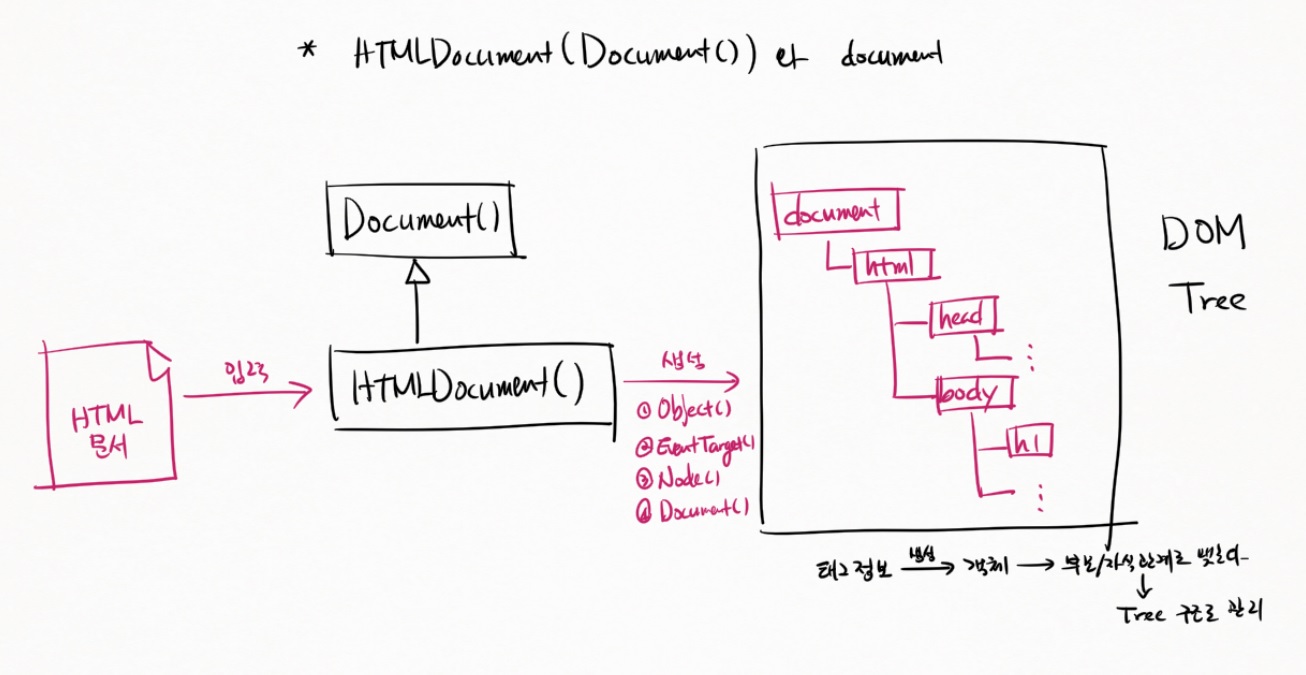 * HTMLDocument(Document()) 와 document
Document()
HTMLDocument()
HTML
문서
입력
생성
① Object()
② EventTarget()
③ Node()
④ Document()
document
html
head
body
h1
DOM
Tree
태그정보 생성 → 객체 → 부모/자식 관계로 맺는다.
↓
Tree 구조로 관리